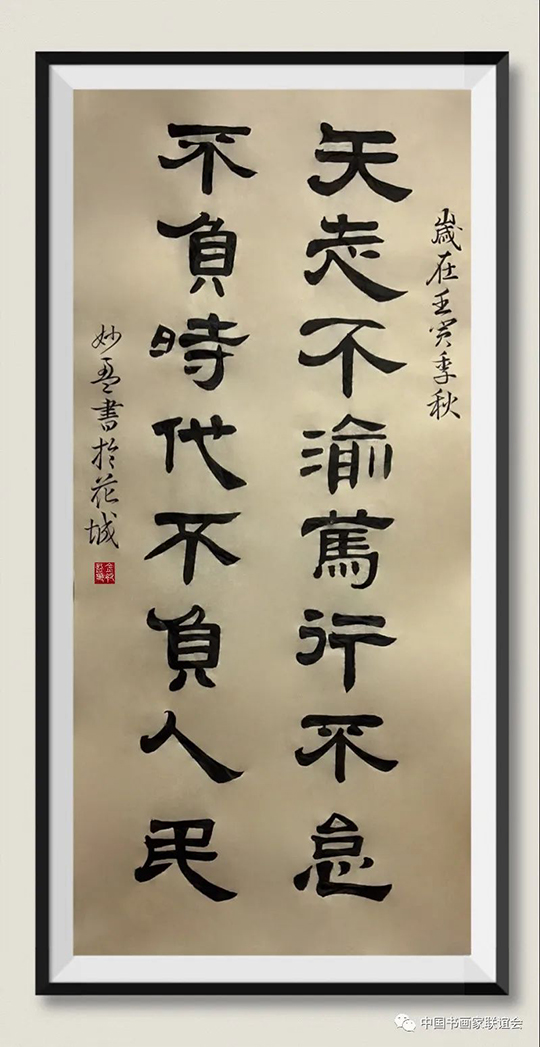 歲在壬寅季秋
矢志不渝篤行不怠
不負時代不負人民
妙盈書於花城
中国书画家联谊会